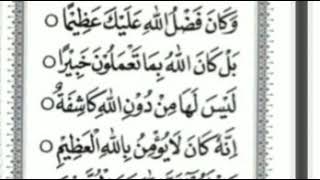 وَكَانَ فَضْلُ اللهِ عَلَيْكَ عَظِيْمًا ○
بَلْ كَانَ اللهُ بِمَا تَعْمَلُوْنَ خَبِيْرًا ○
لَيْسَ لَهَا مِنْ دُوْنِ اللهِ كَاشِفَةٌ ○
اِنَّهٗ كَانَ لَا يُؤْمِنُ بِاللهِ الْعَظِيْمِ ○